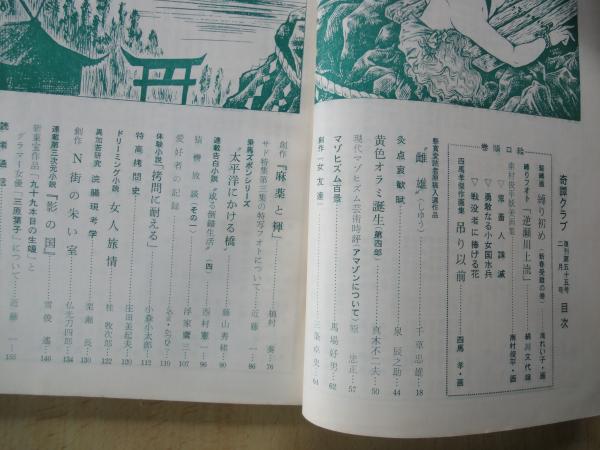 奇譚クラブ 復刊第五十五号 二月号 目次
巻頭口絵
緊縛画 縛り初め(新春受難の巻)
縛りフオト「逆瀬川上流」
南村俊平妖美画集
▽常畜人誅滅
▽勇敢なる小女国水兵
▽戦没者に捧げる花
南村俊平・画
四馬孝傑作画集 吊り以前 四馬孝・画
懸賞愛読者原稿入選作品
“雌雄”(しゆう) 千草忠雄 18
灸点哀歓賦 泉辰之助 44
黄色オラミ誕生(第四部) 真木不二夫 50
現代マゾヒズム芸術時評(アマゾンについて) 原忠正 57
マゾヒズム百景 馬場好男 62
創作「女友達」 三条卓史 64
創作“麻薬と褌” 植村 76
サド特集第三集の特写フオトについて 近藤一 86
乗馬ズボンシリーズ
“太平洋にかける橋” 藤山秀緒 90
連載告白小説“或る倒錯生活”(四) 西村憲一 96
猿轡放談(その一) 浮家鷹三 107
愛好者の記録
体験小説「拷問に耐える」 小森小太郎 112
特高拷問史 庄田美起夫 120
ドリーミング小説 女人旅情 桂牧次郎 132
異加苦研究 浣腸現考学 栗瀬長 134
創作 N街の朱い室 仏光刀四郎 140
連載第三次元小説『影の国』 雪俊遙 146
新東宝作品「九十九本目の生娘」と
グラマー女優“三原葉子”について 近藤一 155
読者通信